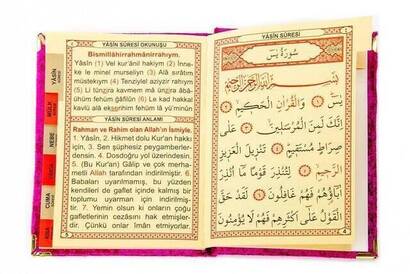 YÂSÎN SÛRESİ OKUNUŞU
Bismillâhirrahmânirrahîym.
Yâsîn (1) Vel kur'ânil hakiym (2) İnne-
ke le minel murseliyn (3) Alâ sırâtım
müstekıym (4) Tenziylel aziyzir rahıym
(5) Li tünzira kavmem mâ ünzira âbâ-
ühüm fehüm ğâfilûn (6) Le kad hakkal
kavlü alâ ekserihim fehüm lâ yü'minûn
YÂSÎN SÛRESİ ANLAMI
Rahman ve Rahim olan Allah'ın İsmiyle.
1. Yâsîn, 2. Hikmet dolu Kur'an hakkı
için, 3. Sen şüphesiz peygamberler-
densin. 4. Dosdoğru yol üzerindesin.
5. (Bu Kur'an) Gâlip ve çok merha-
metli Allah tarafından indirilmiştir. 6.
Babaları uyarılmamış, bu yüzden
kendileri de gaflet içinde kalmış bir
toplumu uyarman için indirilmiş-
tir. 7. Yemin olsun ki onların çoğu
gafletlerinin cezasını hak etmişler-
dir. Çünkü onlar îmân etmiyorlar.
5
YÂSİN
MÜLK
NEBE
CUMA
YÂSÎN SÛRESİ
سُورَةُ يٰسٓ
بِسْمِ اللّٰهِ الرَّحْمٰنِ الرَّحِيمِ
يٰسٓ ﴿١﴾ وَالْقُرْاٰنِ الْحَكِيمِ ﴿٢﴾
اِنَّكَ لَمِنَ الْمُرْسَلِينَ ﴿٣﴾ عَلٰى
صِرَاطٍ مُسْتَقِيمٍ ﴿٤﴾ تَنْزِيلَ الْعَزِيزِ
الرَّحِيمِ ﴿٥﴾ لِتُنْذِرَ قَوْمًا مَا اُنْذِرَ
اٰبَاؤُهُمْ فَهُمْ غَافِلُونَ ﴿٦﴾ لَقَدْ حَقَّ
الْقَوْلُ عَلٰى اَكْثَرِهِمْ فَهُمْ لَا يُؤْمِنُونَ
4